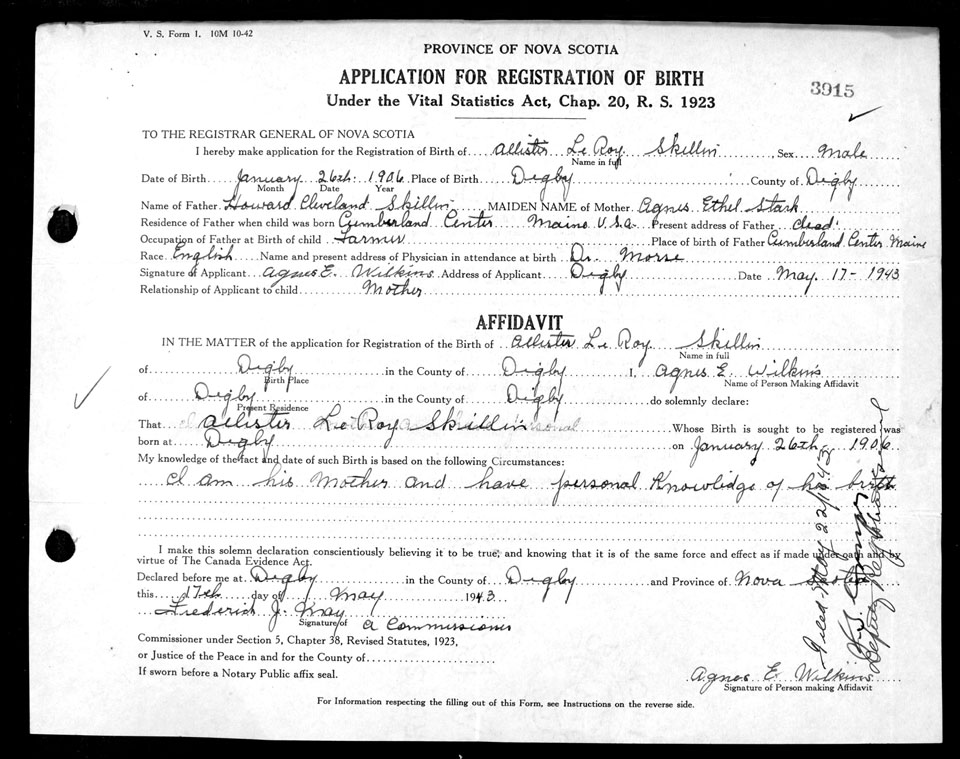 V. S. Form 1. 10M 10-42
PROVINCE OF NOVA SCOTIA
APPLICATION FOR REGISTRATION OF BIRTH
3915
Under the Vital Statistics Act, Chap. 20, R. S. 1923
TO THE REGISTRAR GENERAL OF NOVA SCOTIA
I hereby make application for the Registration of Birth of Allister Le Roy Skillin, Sex Male
Name in full
Date of Birth January 26th 1906 Place of Birth Digby County of Digby
Month Date Year
Name of Father Howard Cleveland Skillin MAIDEN NAME of Mother Agnes Ethel Stark
Residence of Father when child was born Cumberland Center Maine U.S.a. Present address of Father dead
Occupation of Father at Birth of child Farmer Place of birth of Father Cumberland Center Maine
Race English Name and present address of Physician in attendance at birth Dr. Morse
Signature of Applicant Agnes E. Wilkins Address of Applicant Digby Date May 17- 1943
Relationship of Applicant to child Mother
AFFIDAVIT
IN THE MATTER of the application for Registration of the Birth of Allister Le Roy Skillin
Name in full
of Digby in the County of Digby I, Agnes E. Wilkins
Birth Place Name of Person Making Affidavit
of Digby in the County of Digby do solemnly declare:
Present Residence
That Allister Le Roy Skillin Whose Birth is sought to be registered was
born at Digby on January 26th 1906
My knowledge of the fact and date of such Birth is based on the following Circumstances:
I am his Mother and have personal Knowledge of his birth
I make this solemn declaration conscientiously believing it to be true, and knowing that it is of the same force and effect as if made under oath and by
virtue of The Canada Evidence Act.
Declared before me at Digby in the County of Digby and Province of Nova Scotia
this 17th day of May 1943
Frederick J. May
Signature of a Commissioner
Commissioner under Section 5, Chapter 38, Revised Statutes, 1923,
or Justice of the Peace in and for the County of
If sworn before a Notary Public affix seal.
Agnes E. Wilkins
Signature of Person making Affidavit
For Information respecting the filling out of this Form, see Instructions on the reverse side.
Filed May 22/1943
Deputy Registrar General